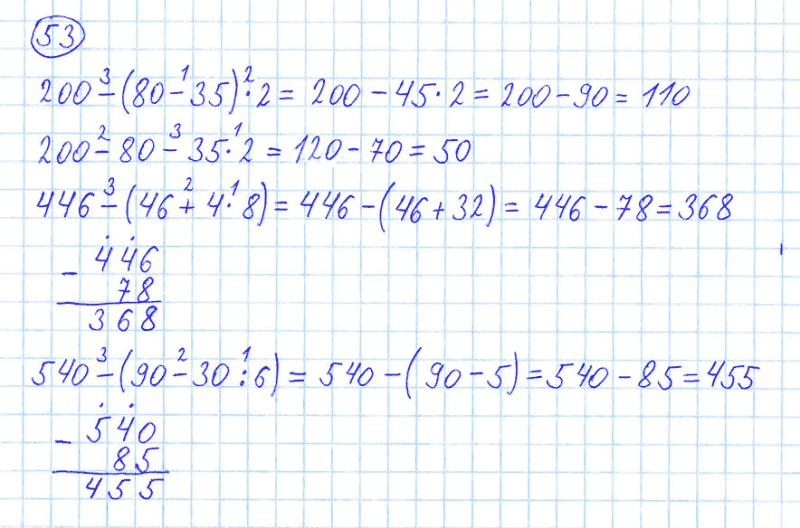 53
200 -³ (80 -¹ 35) ·² 2 = 200 - 45 · 2 = 200 - 90 = 110
200 -² 80 -³ 35 ·¹ 2 = 120 - 70 = 50
446 -³ (46 +² 4 ·¹ 8) = 446 - (46 + 32) = 446 - 78 = 368
- 446
78
368
540 -³ (90 -² 30 :¹ 6) = 540 - (90 - 5) = 540 - 85 = 455
- 540
85
455